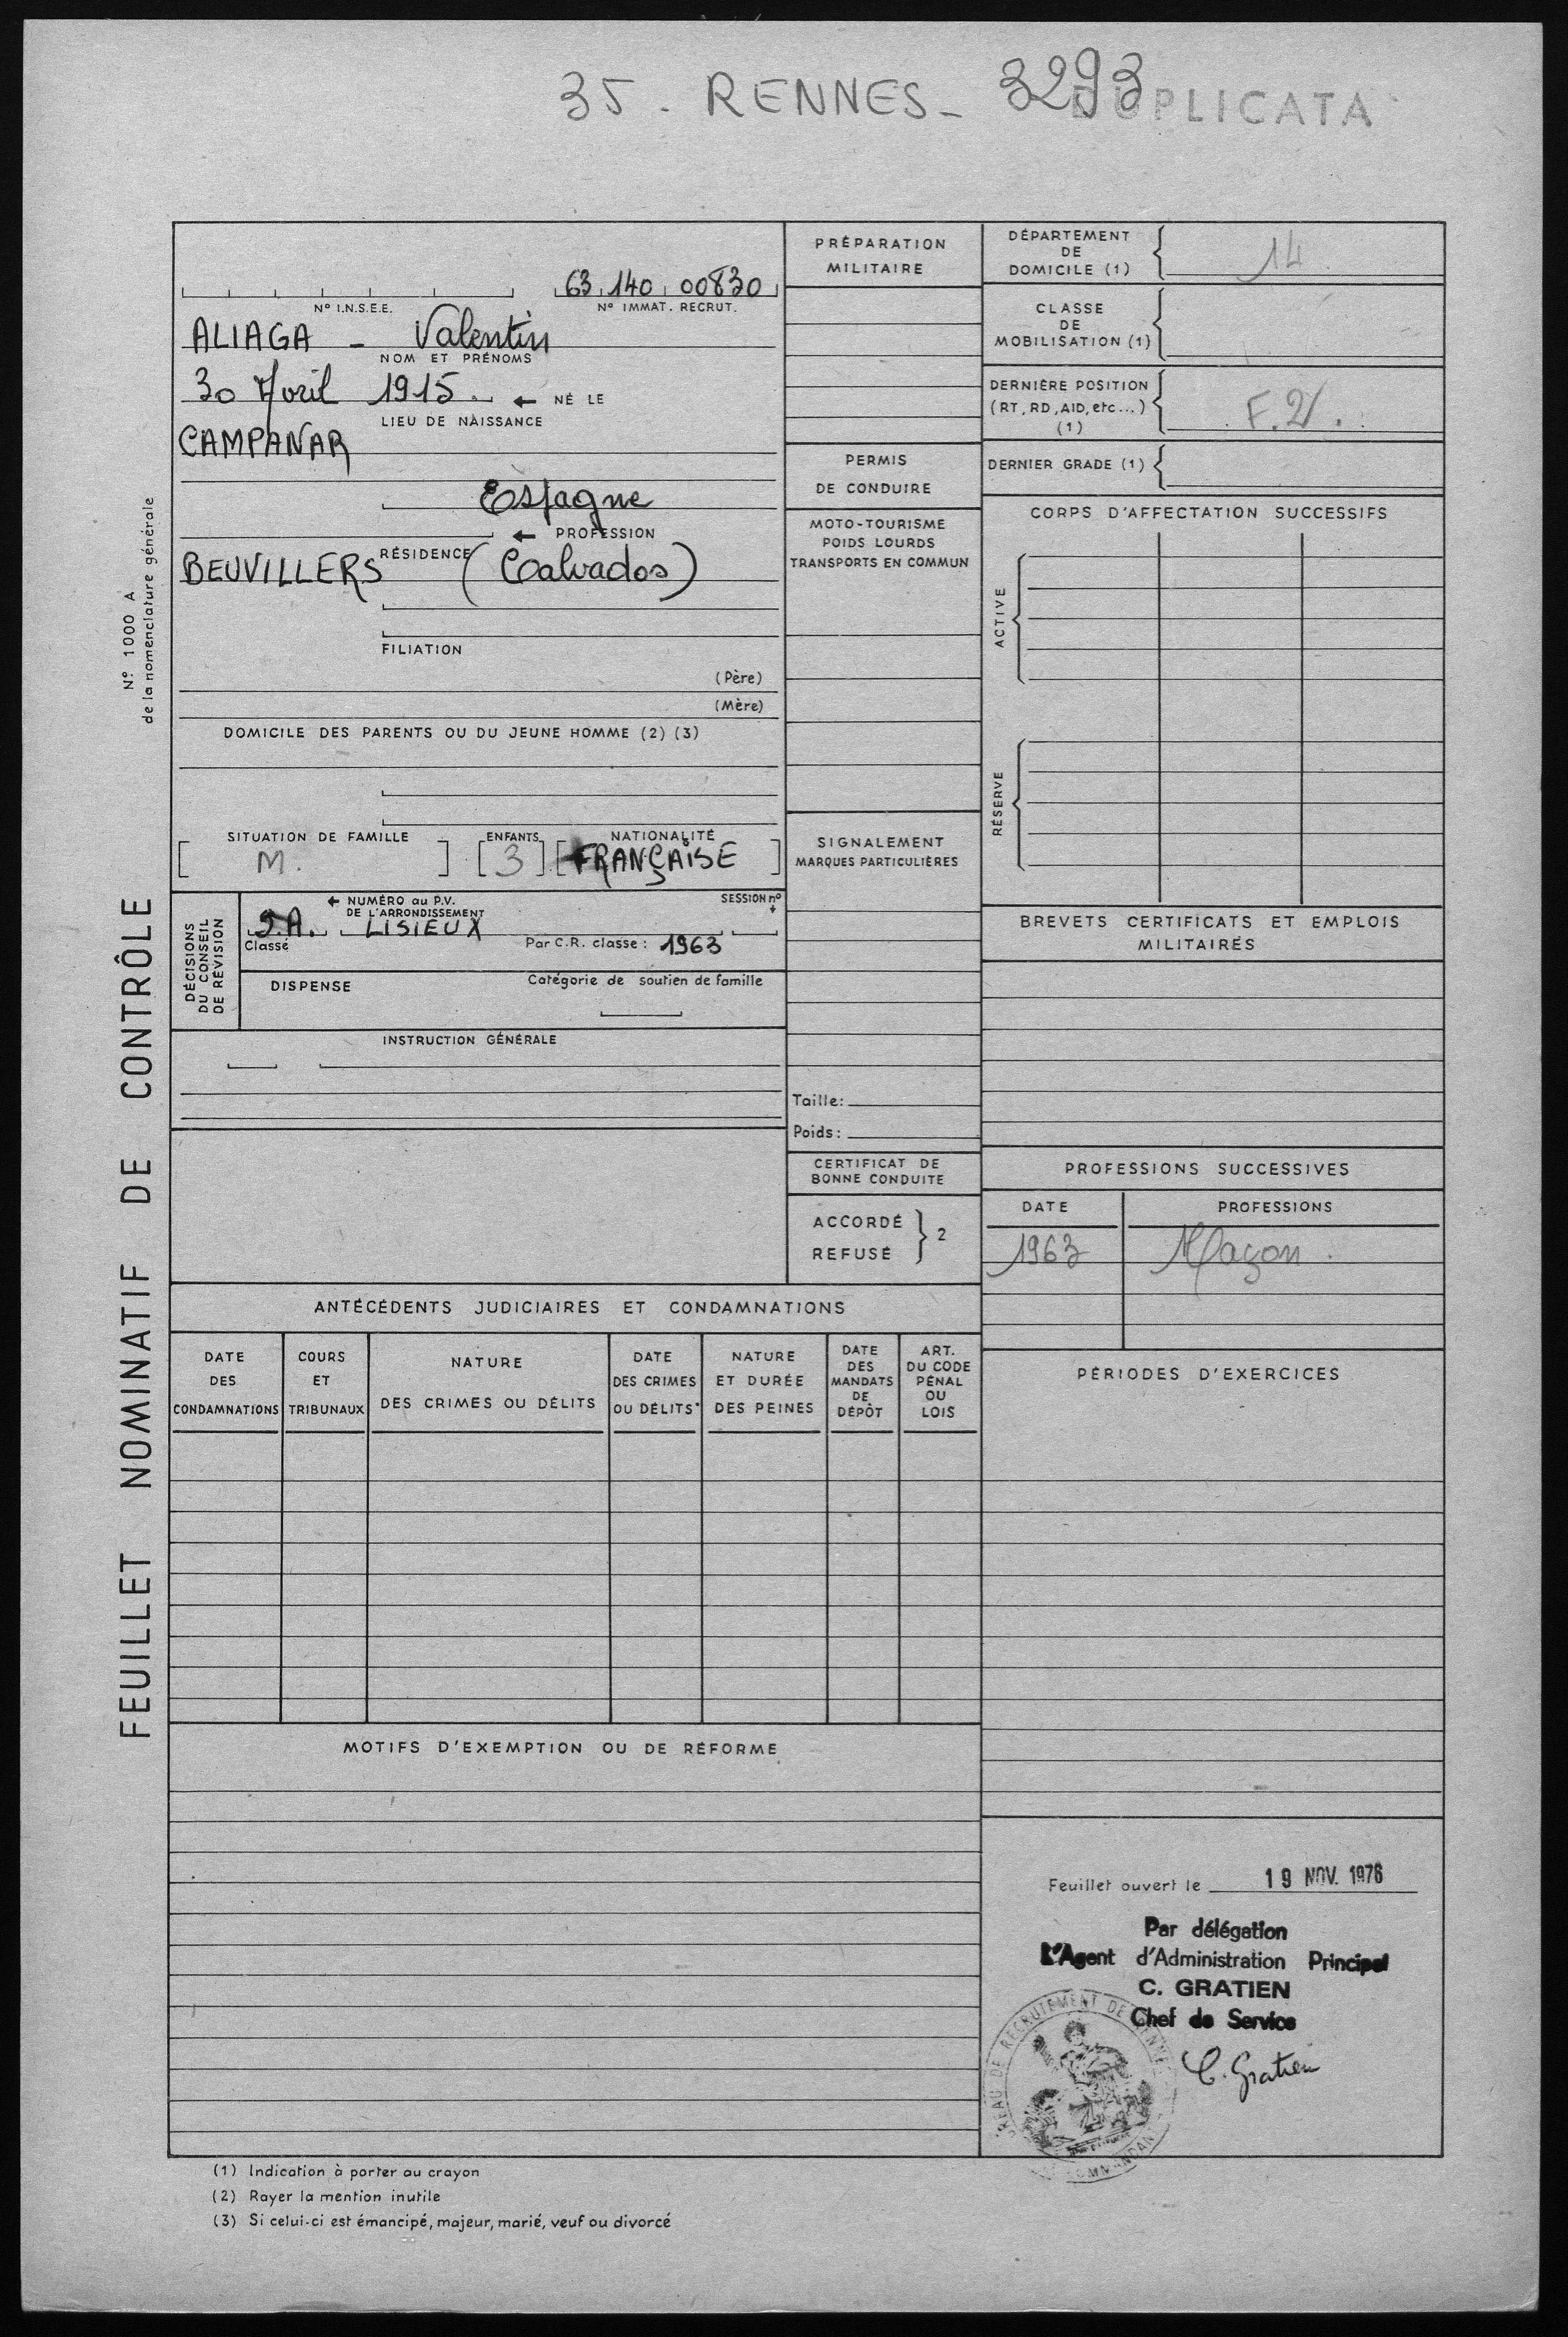 35 - RENNES - 3293
DUPLICATA
FEUILLET NOMINATIF DE CONTRÔLE
N° 1000 A
de la nomenclature générale
63 140 00830
N° I.N.S.E.E.
N° IMMAT. RECRUT.
ALIAGA - Valentin
NOM ET PRÉNOMS
30 Avril 1915. ← NÉ LE
LIEU DE NAISSANCE
CAMPANAR
Espagne
← PROFESSION
RÉSIDENCE
BEUVILLERS (Calvados)
FILIATION
(Père)
(Mère)
DOMICILE DES PARENTS OU DU JEUNE HOMME (2) (3)
SITUATION DE FAMILLE
M.
ENFANTS
3
NATIONALITÉ
FRANÇAISE
DÉCISIONS
DU CONSEIL
DE RÉVISION
← NUMÉRO au P.V.
DE L'ARRONDISSEMENT
SESSION n°
LISIEUX
Classé
Par C.R. classe : 1963
DISPENSE
Catégorie de soutien de famille
INSTRUCTION GÉNÉRALE
PRÉPARATION
MILITAIRE
PERMIS
DE CONDUIRE
MOTO-TOURISME
POIDS LOURDS
TRANSPORTS EN COMMUN
SIGNALEMENT
MARQUES PARTICULIÈRES
Taille:
Poids:
CERTIFICAT DE
BONNE CONDUITE
ACCORDÉ
REFUSÉ
} 2
DÉPARTEMENT
DE
DOMICILE (1)
14
CLASSE
DE
MOBILISATION (1)
DERNIÈRE POSITION
(RT, RD, AID, etc...)
(1)
DERNIER GRADE (1)
CORPS D'AFFECTATION SUCCESSIFS
ACTIVE
RÉSERVE
BREVETS CERTIFICATS ET EMPLOIS
MILITAIRES
PROFESSIONS SUCCESSIVES
DATE PROFESSIONS
1963 Maçon.
PÉRIODES D'EXERCICES
ANTÉCÉDENTS JUDICIAIRES ET CONDAMNATIONS
DATE
DES
CONDAMNATIONS
COURS
ET
TRIBUNAUX
NATURE
DES CRIMES OU DÉLITS
DATE
DES CRIMES
OU DÉLITS
NATURE
ET DURÉE
DES PEINES
DATE
DES
MANDATS
DE
DÉPÔT
ART.
DU CODE
PÉNAL
OU
LOIS
MOTIFS D'EXEMPTION OU DE RÉFORME
Feuillet ouvert le 19 NOV. 1976
Par délégation
L'Agent d'Administration Principal
C. GRATIEN
Chef de Service
C. Gratien
(1) Indication à porter au crayon
(2) Rayer la mention inutile
(3) Si celui-ci est émancipé, majeur, marié, veuf ou divorcé